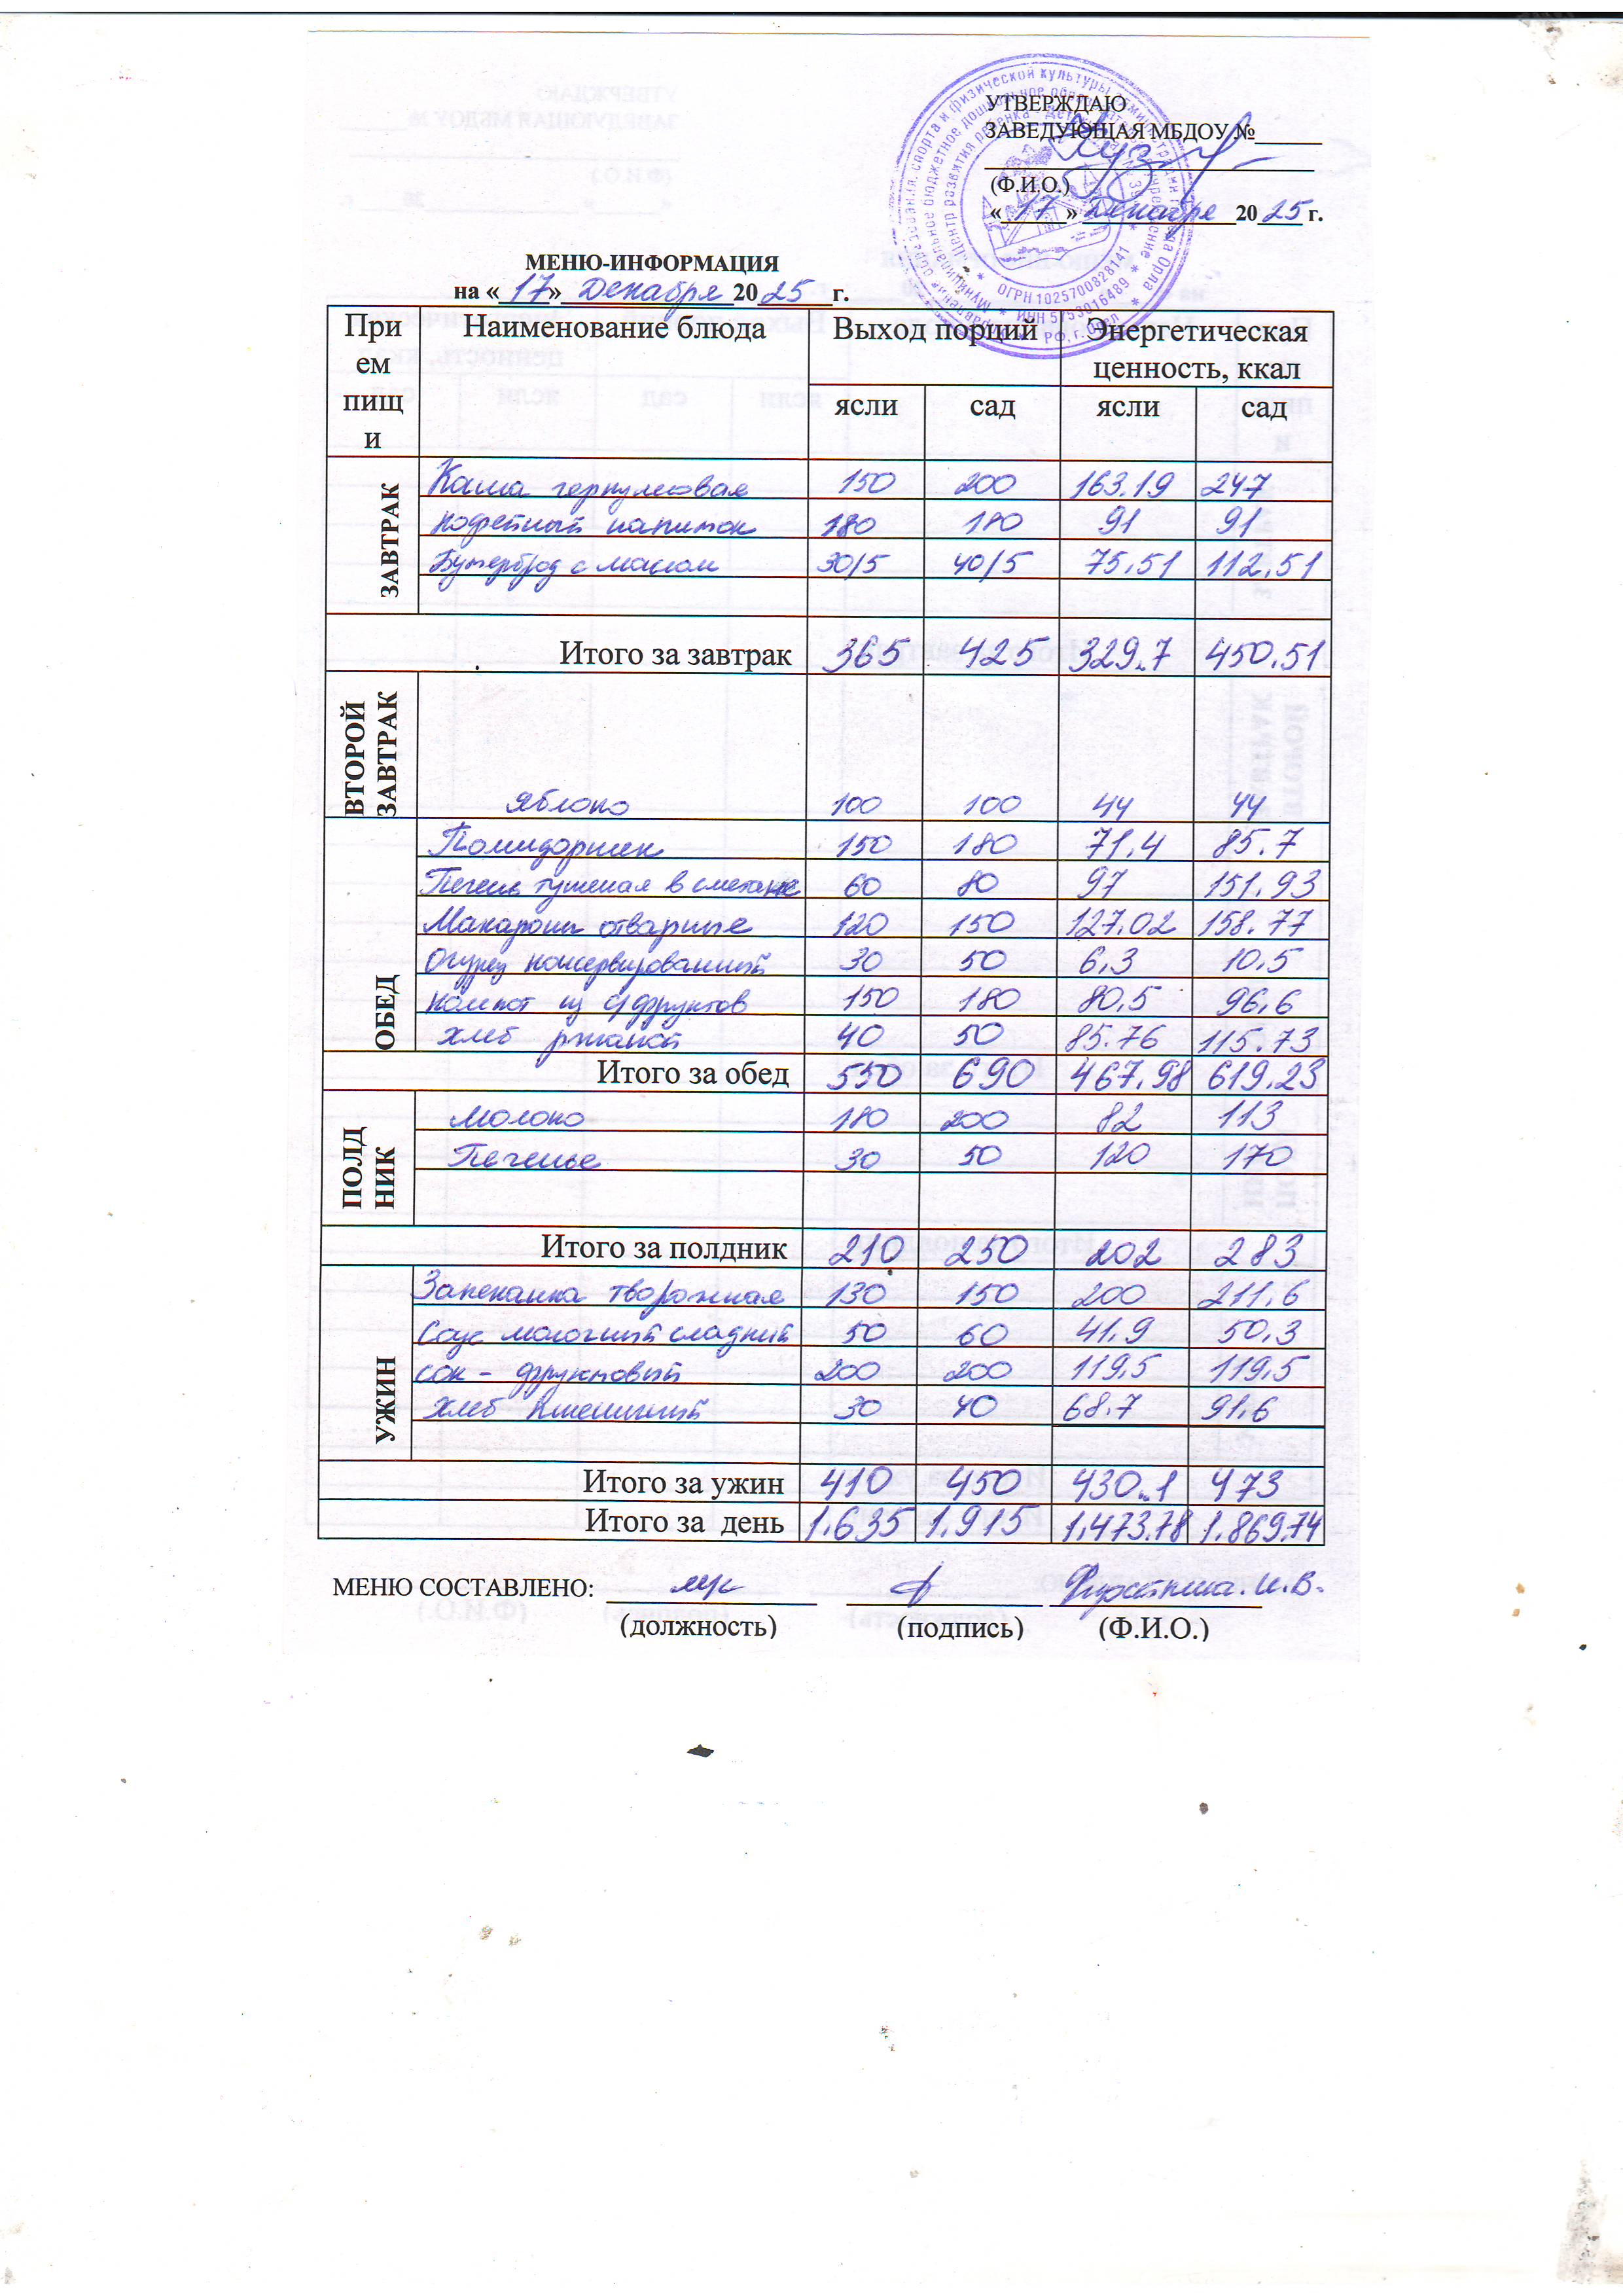 УТВЕРЖДАЮ
ЗАВЕДУЮЩАЯ МБДОУ №
(Ф.И.О.)
«17» Декабря 2025 г.
ОГРН 1025700828141
ИНН 5753016489
РФ, г. Орел
МЕНЮ-ИНФОРМАЦИЯ
на «17» Декабря 2025 г.
При ем пищ и Наименование блюда Выход порций Энергетическая ценность, ккал
ясли сад ясли сад
ЗАВТРАК
Каша геркулесовая 150 200 163.19 247
Кофейный напиток 180 180 91 91
Бутерброд с маслом 30/5 40/5 75.51 112.51
Итого за завтрак 365 425 329.7 450.51
ВТОРОЙ ЗАВТРАК
Яблоко 100 100 44 44
ОБЕД
150 180 71.4 85.7
Печень тушеная в сметане 60 80 97 151.93
Макароны отварные 120 150 127.02 158.77
Огурец консервированный 30 50 6.3 10.5
Компот из с/фруктов 150 180 80.5 96.6
Хлеб ржаной 40 50 85.76 115.73
Итого за обед 550 690 467.98 619.23
ПОЛД НИК
Молоко 180 200 82 113
Печенье 30 50 120 170
Итого за полдник 210 250 202 283
УЖИН
Запеканка творожная 130 150 200 211.6
Соус молочный сладкий 50 60 41.9 50.3
Сок - фруктовый 200 200 119.5 119.5
Хлеб пшеничный 30 40 68.7 91.6
Итого за ужин 410 450 430.1 473
Итого за день 1.635 1.915 1.473.78 1.869.74
МЕНЮ СОСТАВЛЕНО:
(должность) (подпись) (Ф.И.О.)